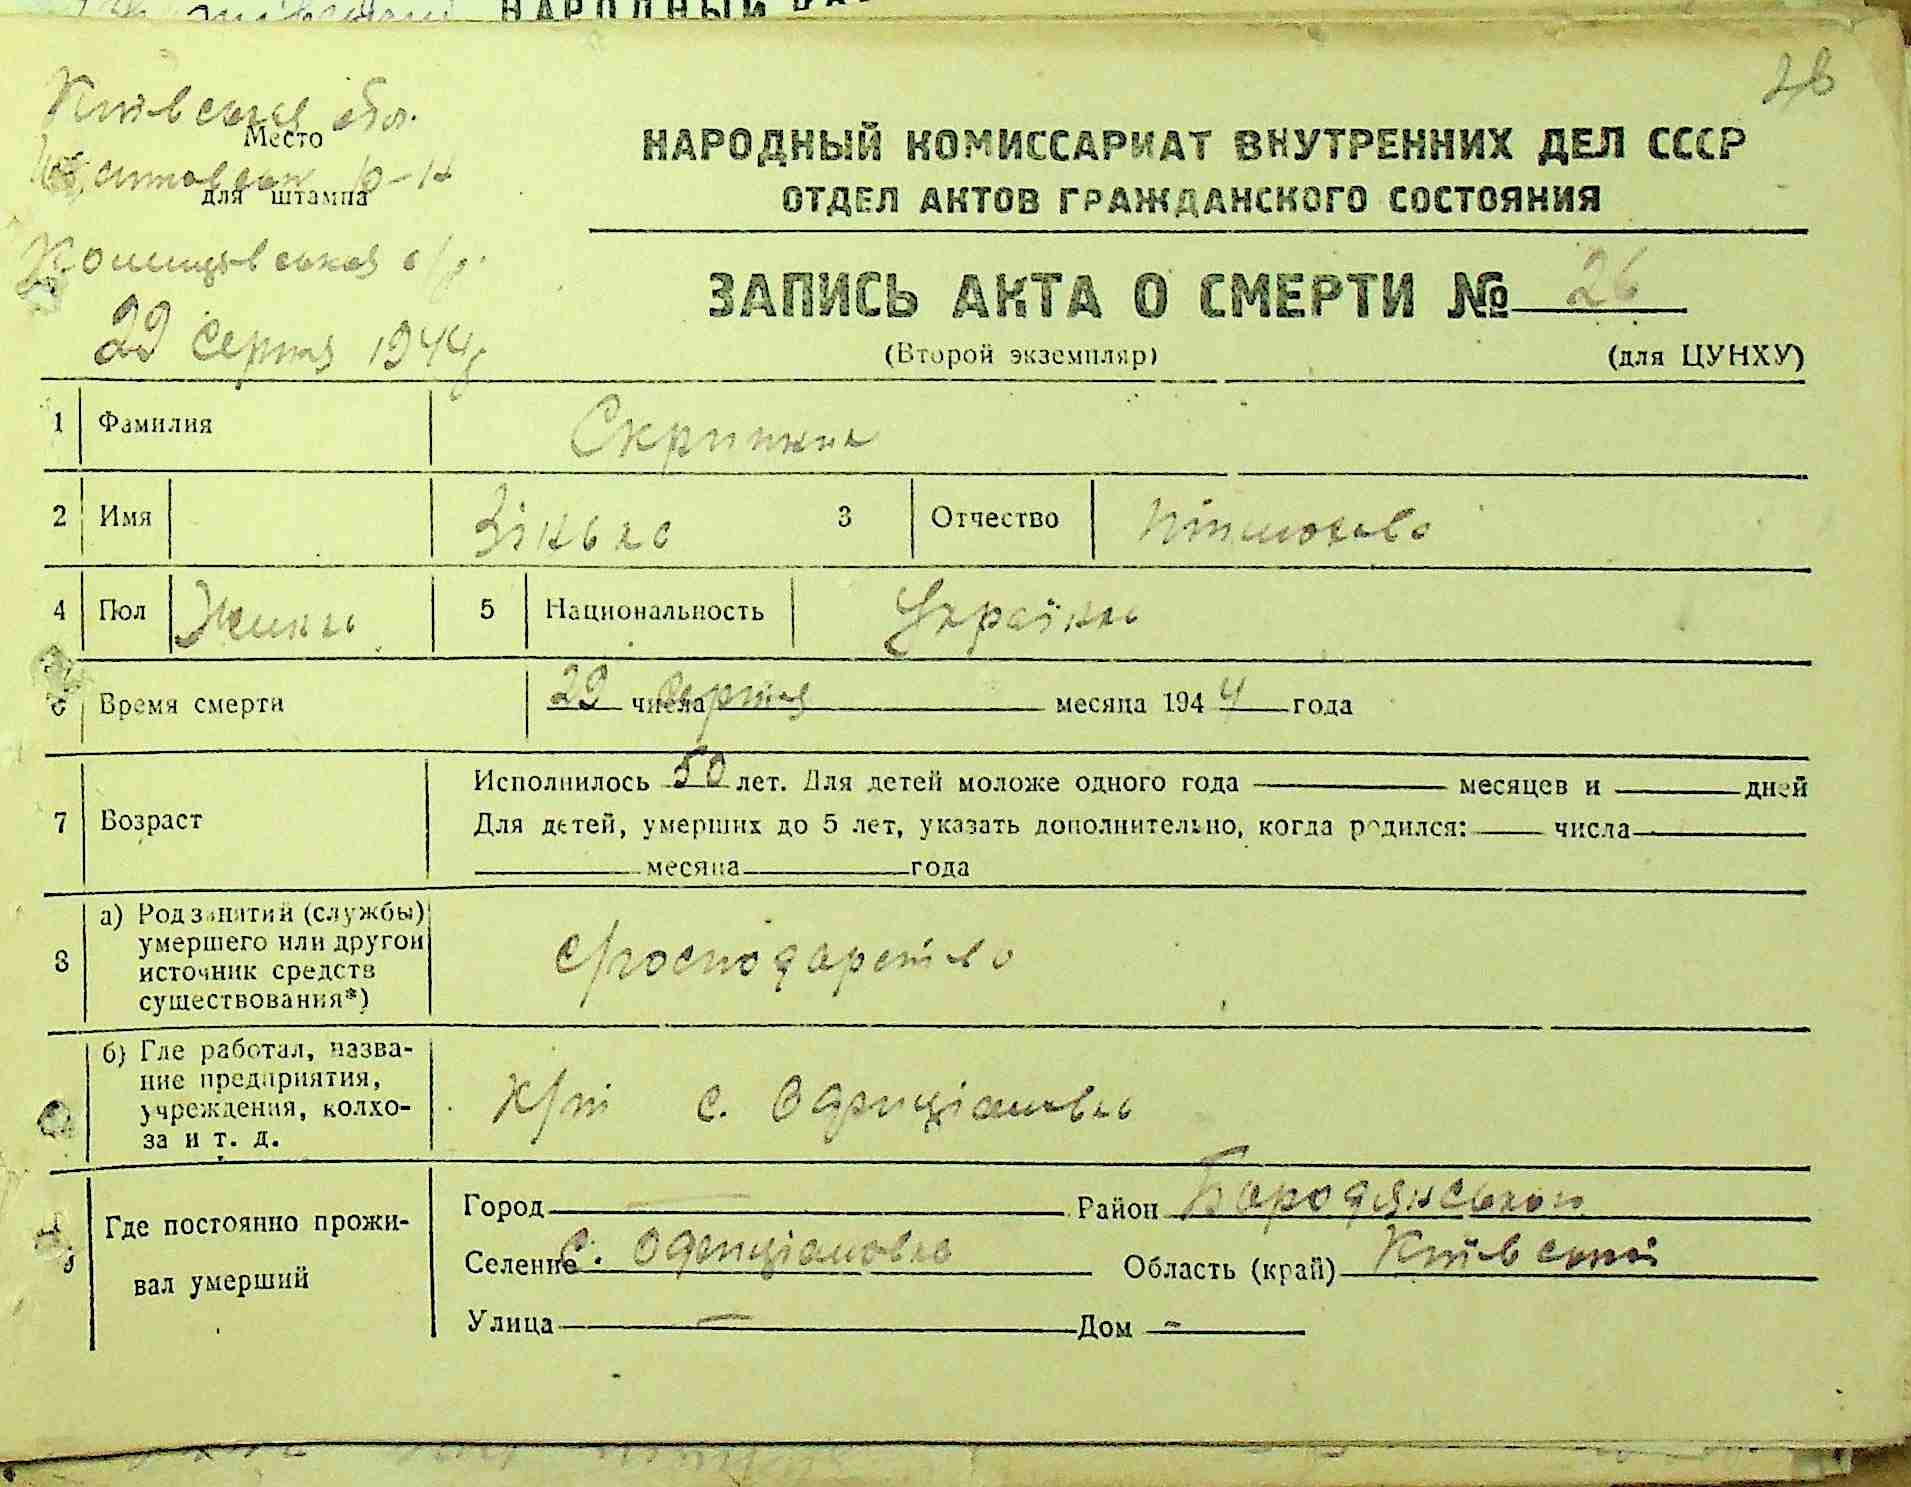 НАРОДНЫЙ
26
Київська обл.
Место
р-н
для штампа
с/р.
29 серпня 1944 р
НАРОДНЫЙ КОМИССАРИАТ ВНУТРЕННИХ ДЕЛ СССР
ОТДЕЛ АКТОВ ГРАЖДАНСКОГО СОСТОЯНИЯ
ЗАПИСЬ АКТА О СМЕРТИ № 26
(Второй экземпляр) (для ЦУНХУ)
1 Фамилия Скрипка
2 Имя Зінька 3 Отчество
4 Пол Жинка 5 Национальность Українка
6 Время смерти 29 числа серпня месяца 1944 года
7 Возраст Исполнилось 50 лет. Для детей моложе одного года месяцев и дней
Для детей, умерших до 5 лет, указать дополнительно, когда родился: числа
месяца года
8 а) Род занятий (службы) умершего или другой источник средств существования*) с/господарство
б) Где работал, название предприятия, учреждения, колхоза и т. д. к/п с.
Где постоянно проживал умерший
Город — Район Бородянський
Селение с. Область (край) Київській
Улица — Дом -